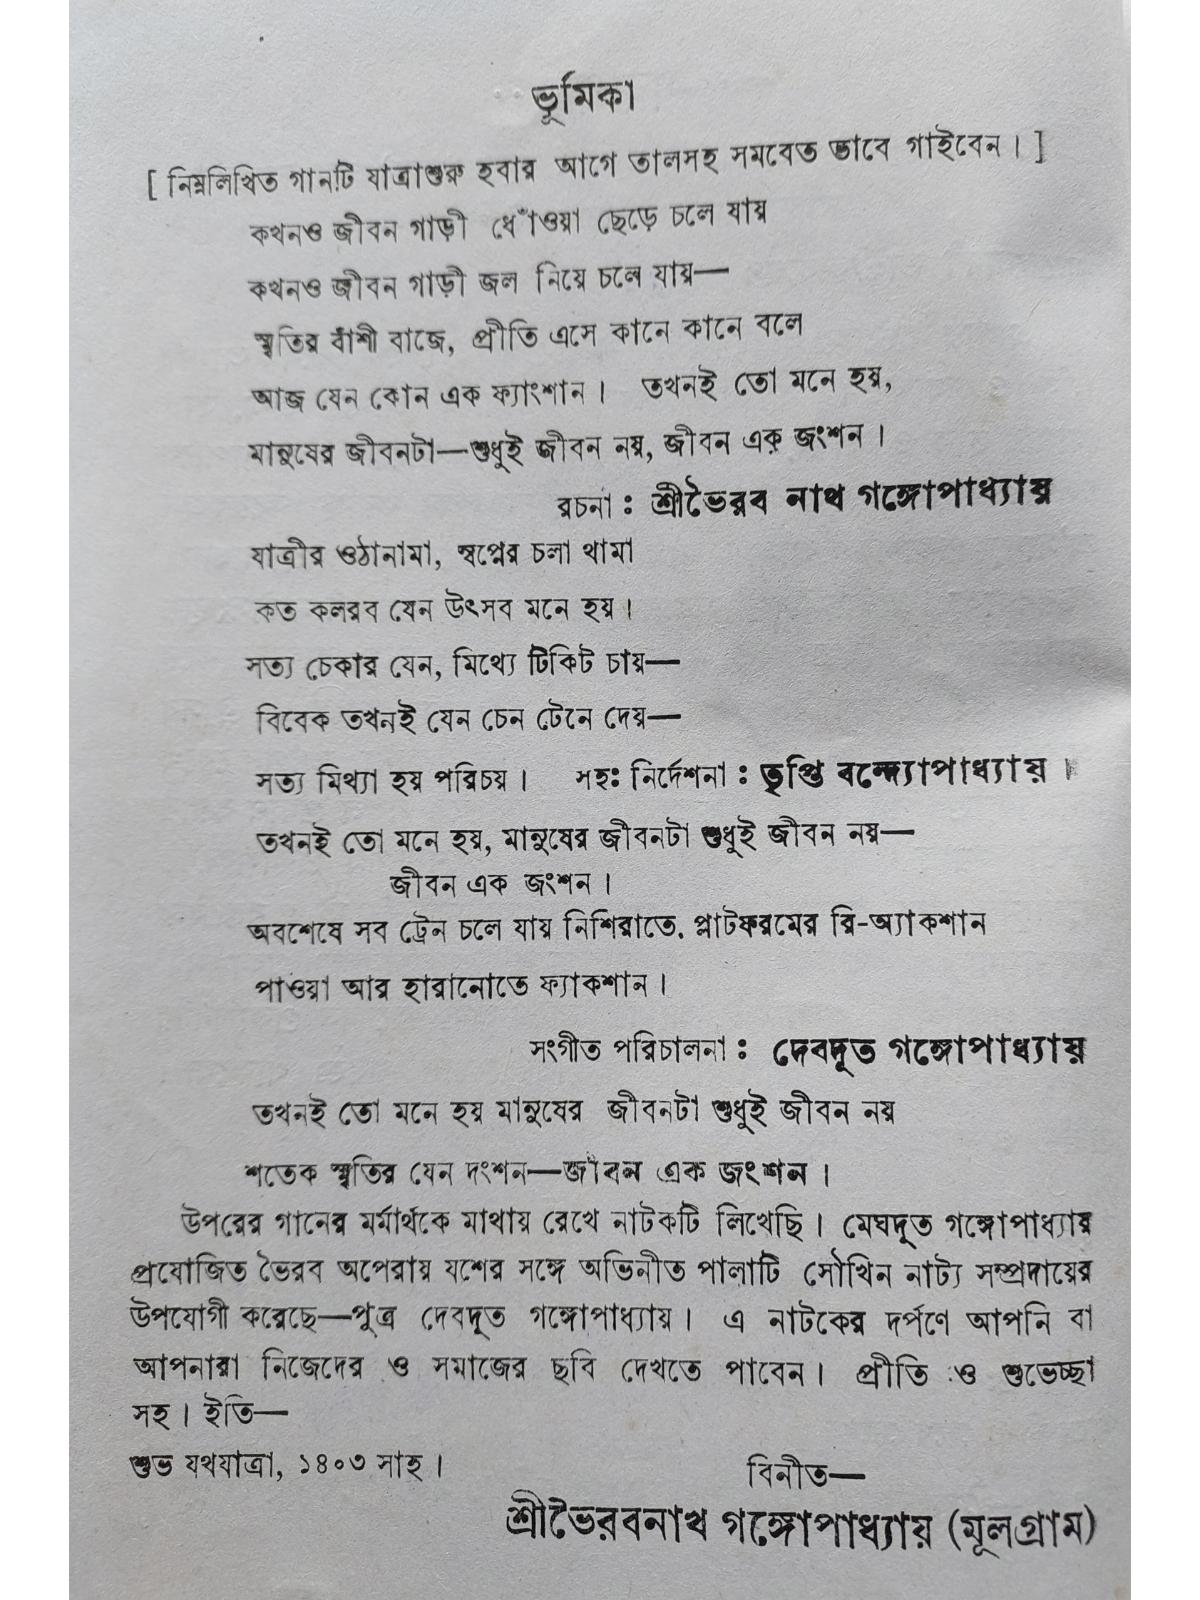 ভূমিকা
[ নিম্নলিখিত গানটি যাত্রাশুরু হবার আগে তালসহ সমবেত ভাবে গাইবেন। ]
কখনও জীবন গাড়ী ধোঁওয়া ছেড়ে চলে যায়
কখনও জীবন গাড়ী জল নিয়ে চলে যায়—
স্মৃতির বাঁশী বাজে, প্রীতি এসে কানে কানে বলে
আজ যেন কোন এক ফ্যাংশান। তখনই তো মনে হয়,
মানুষের জীবনটা—শুধুই জীবন নয়, জীবন এক জংশন।
রচনা : শ্রীভৈরব নাথ গঙ্গোপাধ্যায়
যাত্রীর ওঠানামা, স্বপ্নের চলা থামা
কত কলরব যেন উৎসব মনে হয়।
সত্য চেকার যেন, মিথ্যে টিকিট চায়—
বিবেক তখনই যেন চেন টেনে দেয়—
সত্য মিথ্যা হয় পরিচয়। সহঃ নির্দেশনা : তৃপ্তি বন্দ্যোপাধ্যায়।
তখনই তো মনে হয়, মানুষের জীবনটা শুধুই জীবন নয়—
জীবন এক জংশন।
অবশেষে সব ট্রেন চলে যায় নিশিরাতে. প্লাটফরমের রি-অ্যাকশান
পাওয়া আর হারানোতে ফ্যাকশান।
সংগীত পরিচালনা : দেবদূত গঙ্গোপাধ্যায়
তখনই তো মনে হয় মানুষের জীবনটা শুধুই জীবন নয়
শতেক স্মৃতির যেন দংশন—জীবন এক জংশন।
উপরের গানের মর্মার্থকে মাথায় রেখে নাটকটি লিখেছি। মেঘদূত গঙ্গোপাধ্যার
প্রযোজিত ভৈরব অপেরায় যশের সঙ্গে অভিনীত পালাটি সৌখিন নাট্য সম্প্রদায়ের
উপযোগী করেছে—পুত্র দেবদূত গঙ্গোপাধ্যায়। এ নাটকের দর্পণে আপনি বা
আপনারা নিজেদের ও সমাজের ছবি দেখতে পাবেন। প্রীতি ও শুভেচ্ছা
সহ। ইতি—
শুভ যথযাত্রা, ১৪০৩ সাহ।
বিনীত—
শ্রীভৈরবনাথ গঙ্গোপাধ্যায় (মূলগ্রাম)